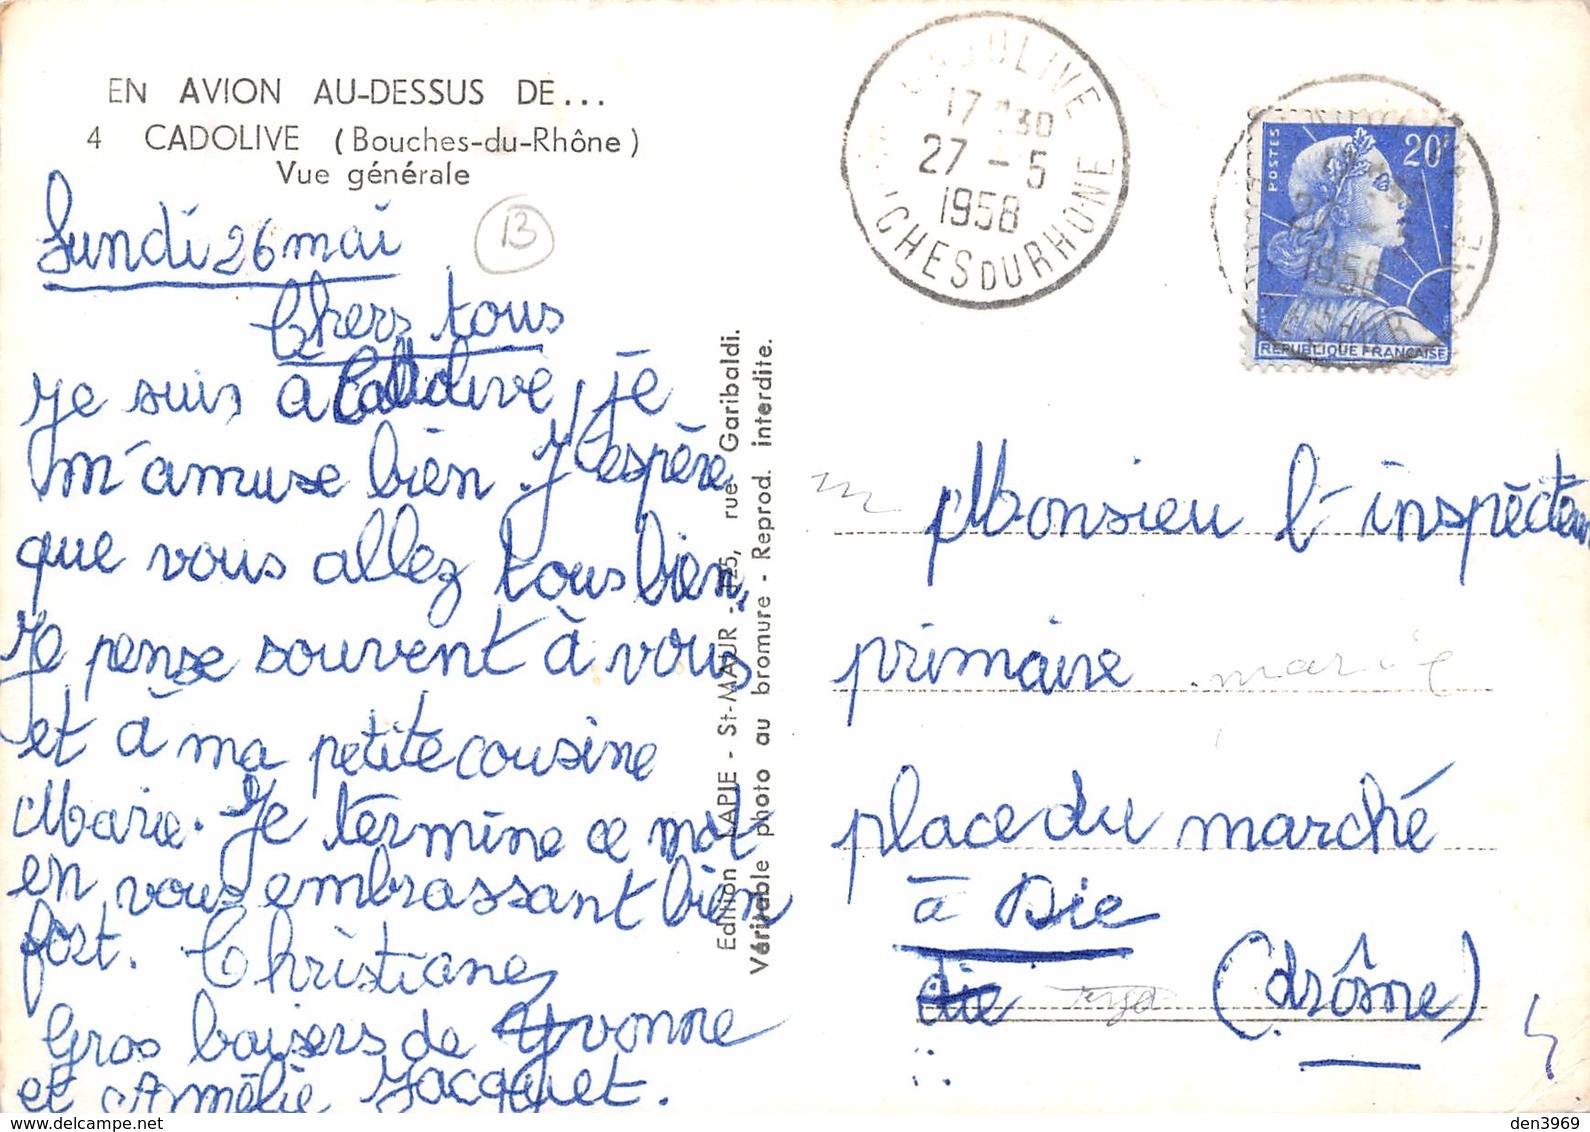 EN AVION AU-DESSUS DE...
4 CADOLIVE (Bouches-du-Rhône)
Vue générale
B
Lundi 26 mai
Chers tous
Je suis à Cadolive, je
m'amuse bien. J'espère
que vous allez tous bien,
Je pense souvent à vous
et à ma petite cousine
Marie. Je termine ce mot
en vous embrassant bien
fort. Christiane
Gros baisers de Yvonne
et Amélie Jacquet.
Edition LAPIE - St-MAUR - 125, rue Garibaldi.
Véritable photo au bromure - Reprod. interdite.
CADOLIVE
17 30
27 - 5
1958
BOUCHES DU RHONE
POSTES
20F
REPUBLIQUE FRANÇAISE
27 - 5
1958
Monsieur l'inspécteur
primaire
marie
place du marché
à Die
die
(drôme)
delcampe.net
den3969